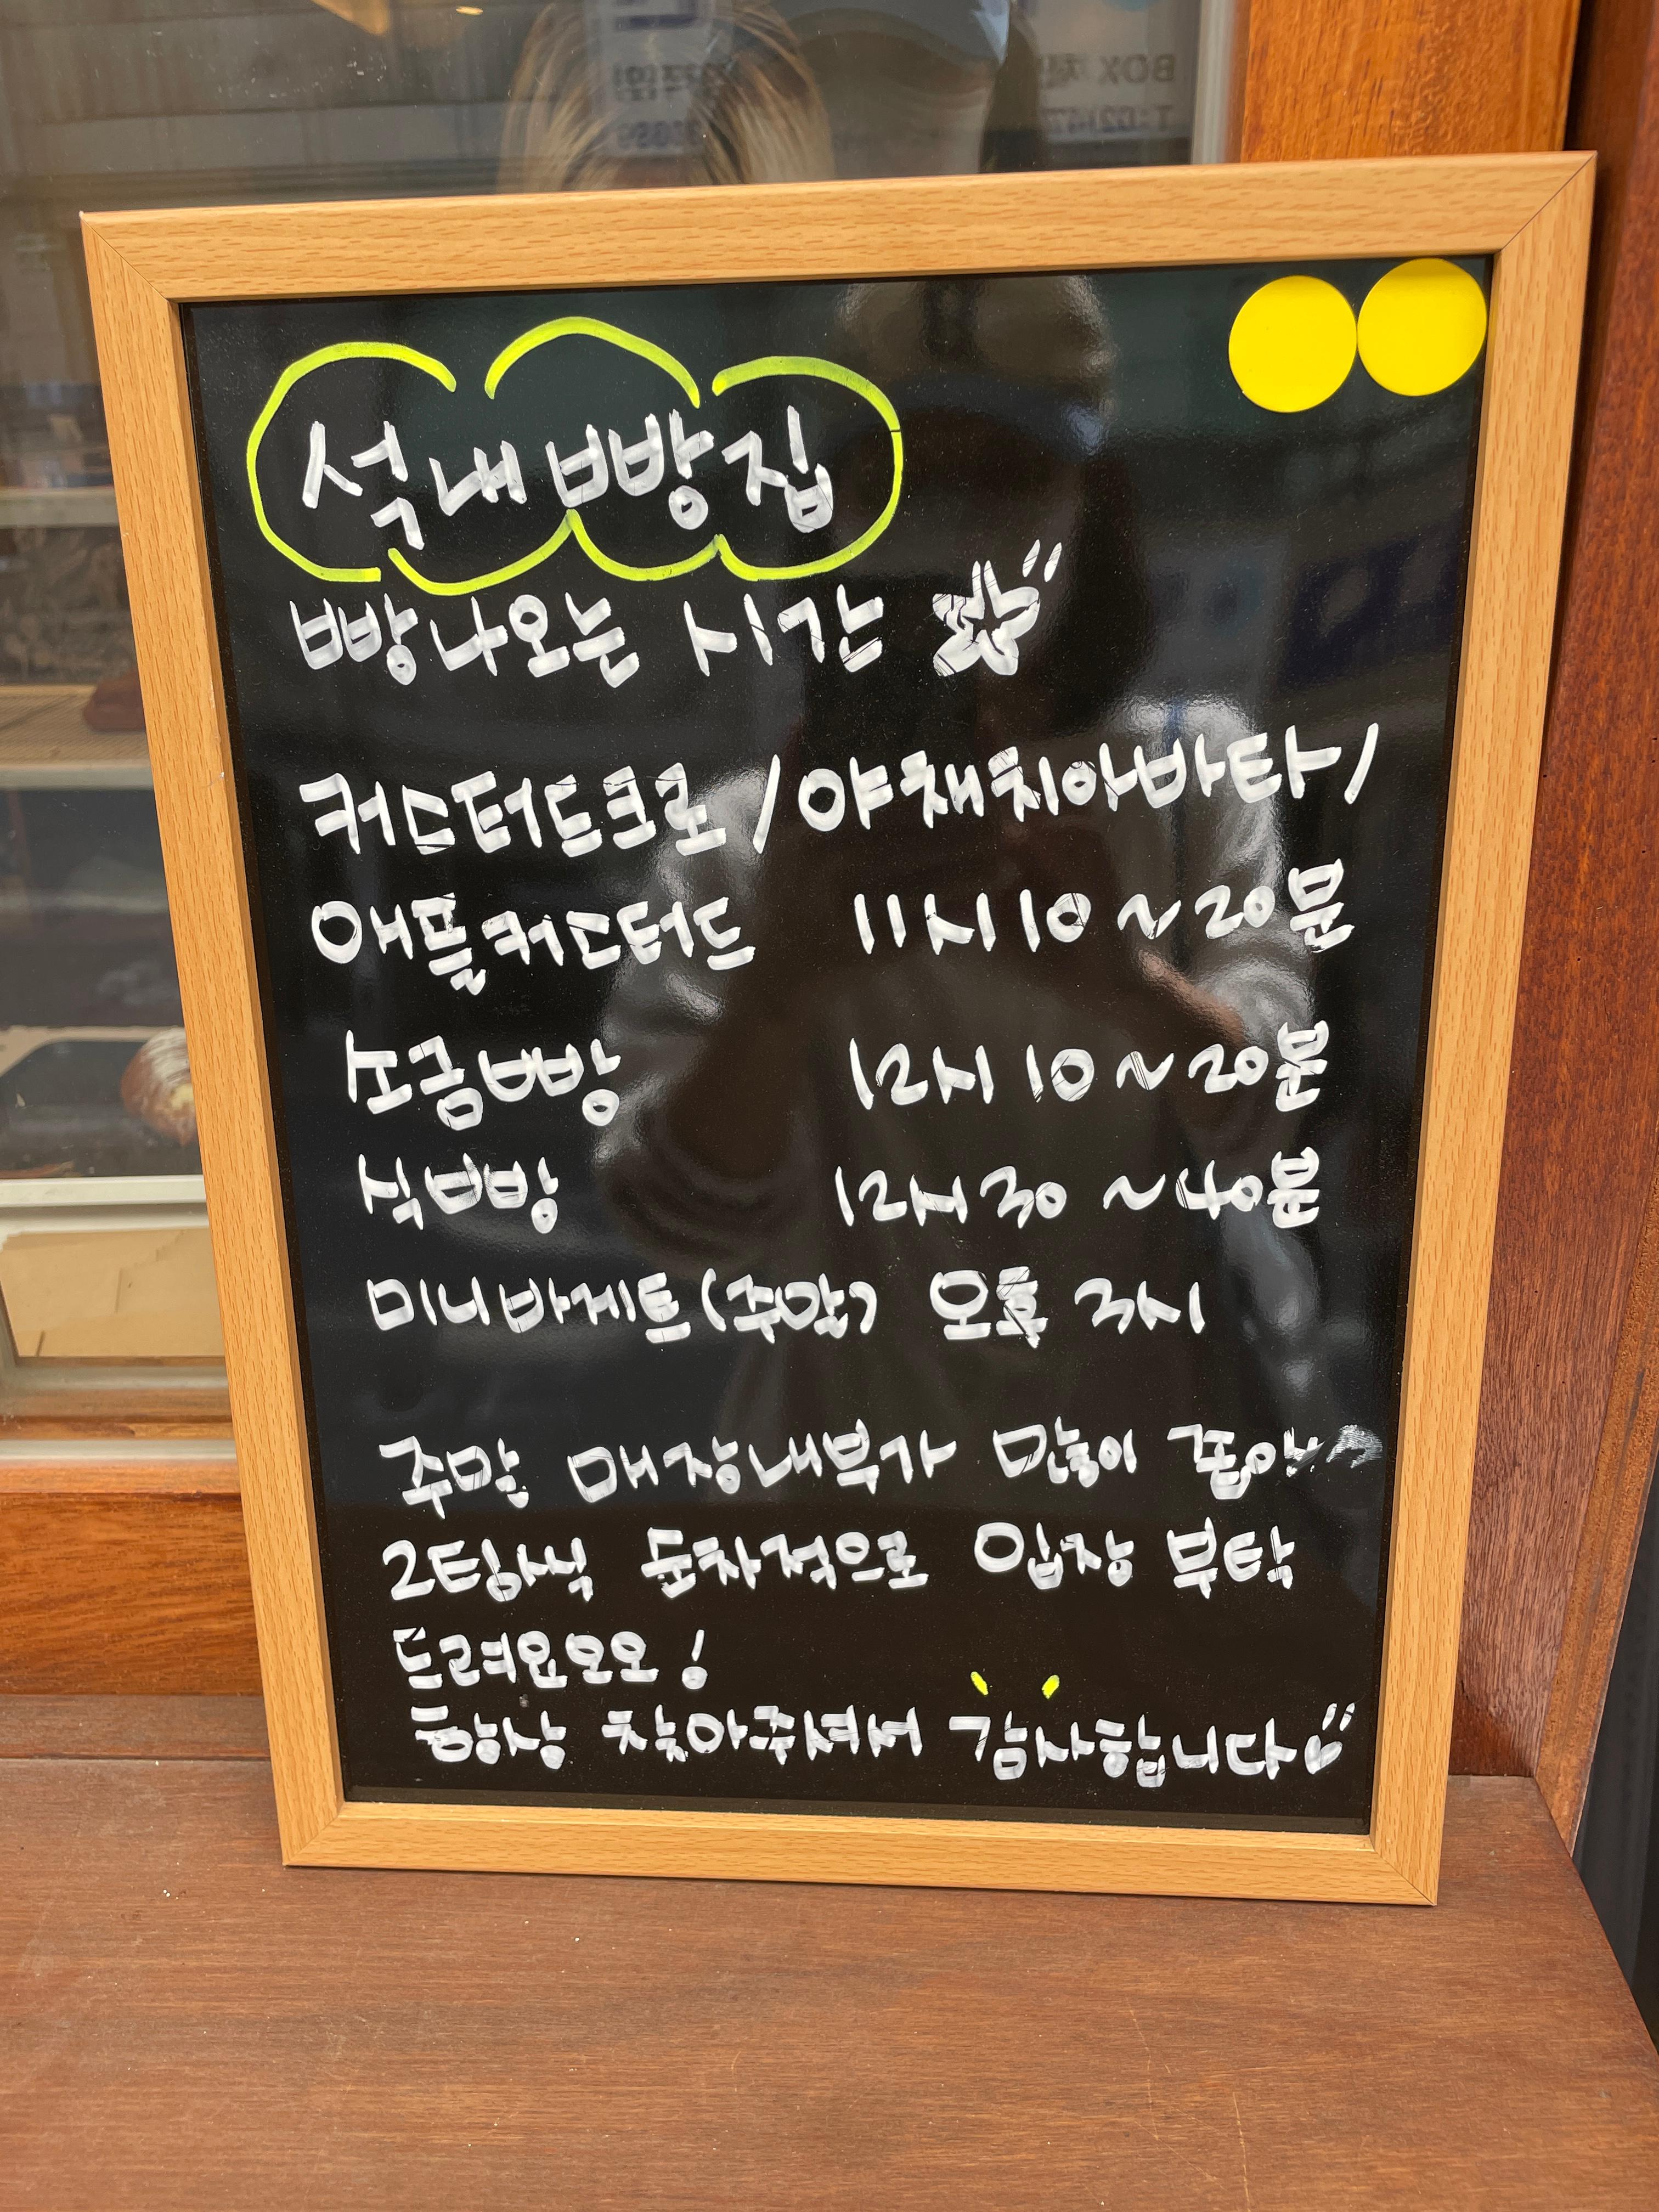 석내빵집
빵나오는 시간
커스터드크로 / 야채치아바타 /
애플커스터드 11시 10 ~ 20분
소금빵 12시 10 ~ 20분
식빵 12시 30 ~ 40분
미니바게트(주말) 오후 3시
주말 매장내부가 많이 좁아
2팀씩 순차적으로 입장 부탁
드려요오오!
항상 찾아주셔서 감사합니다
BOX